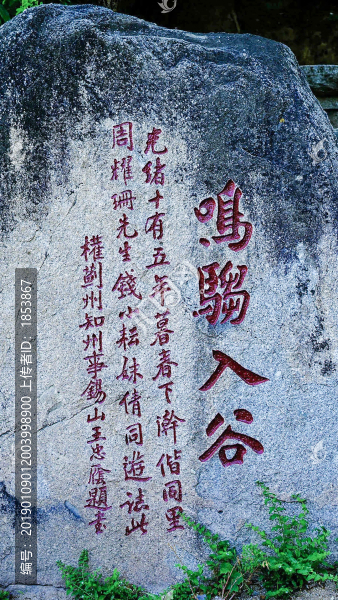 鳴騶入谷
光緒十有五年暮春下澣偕同里
周耀珊先生錢小耘妹倩同遊誌此
權薊州知州事錫山王忠廕題書
编号：20190109012003998900 上传者ID：1853867